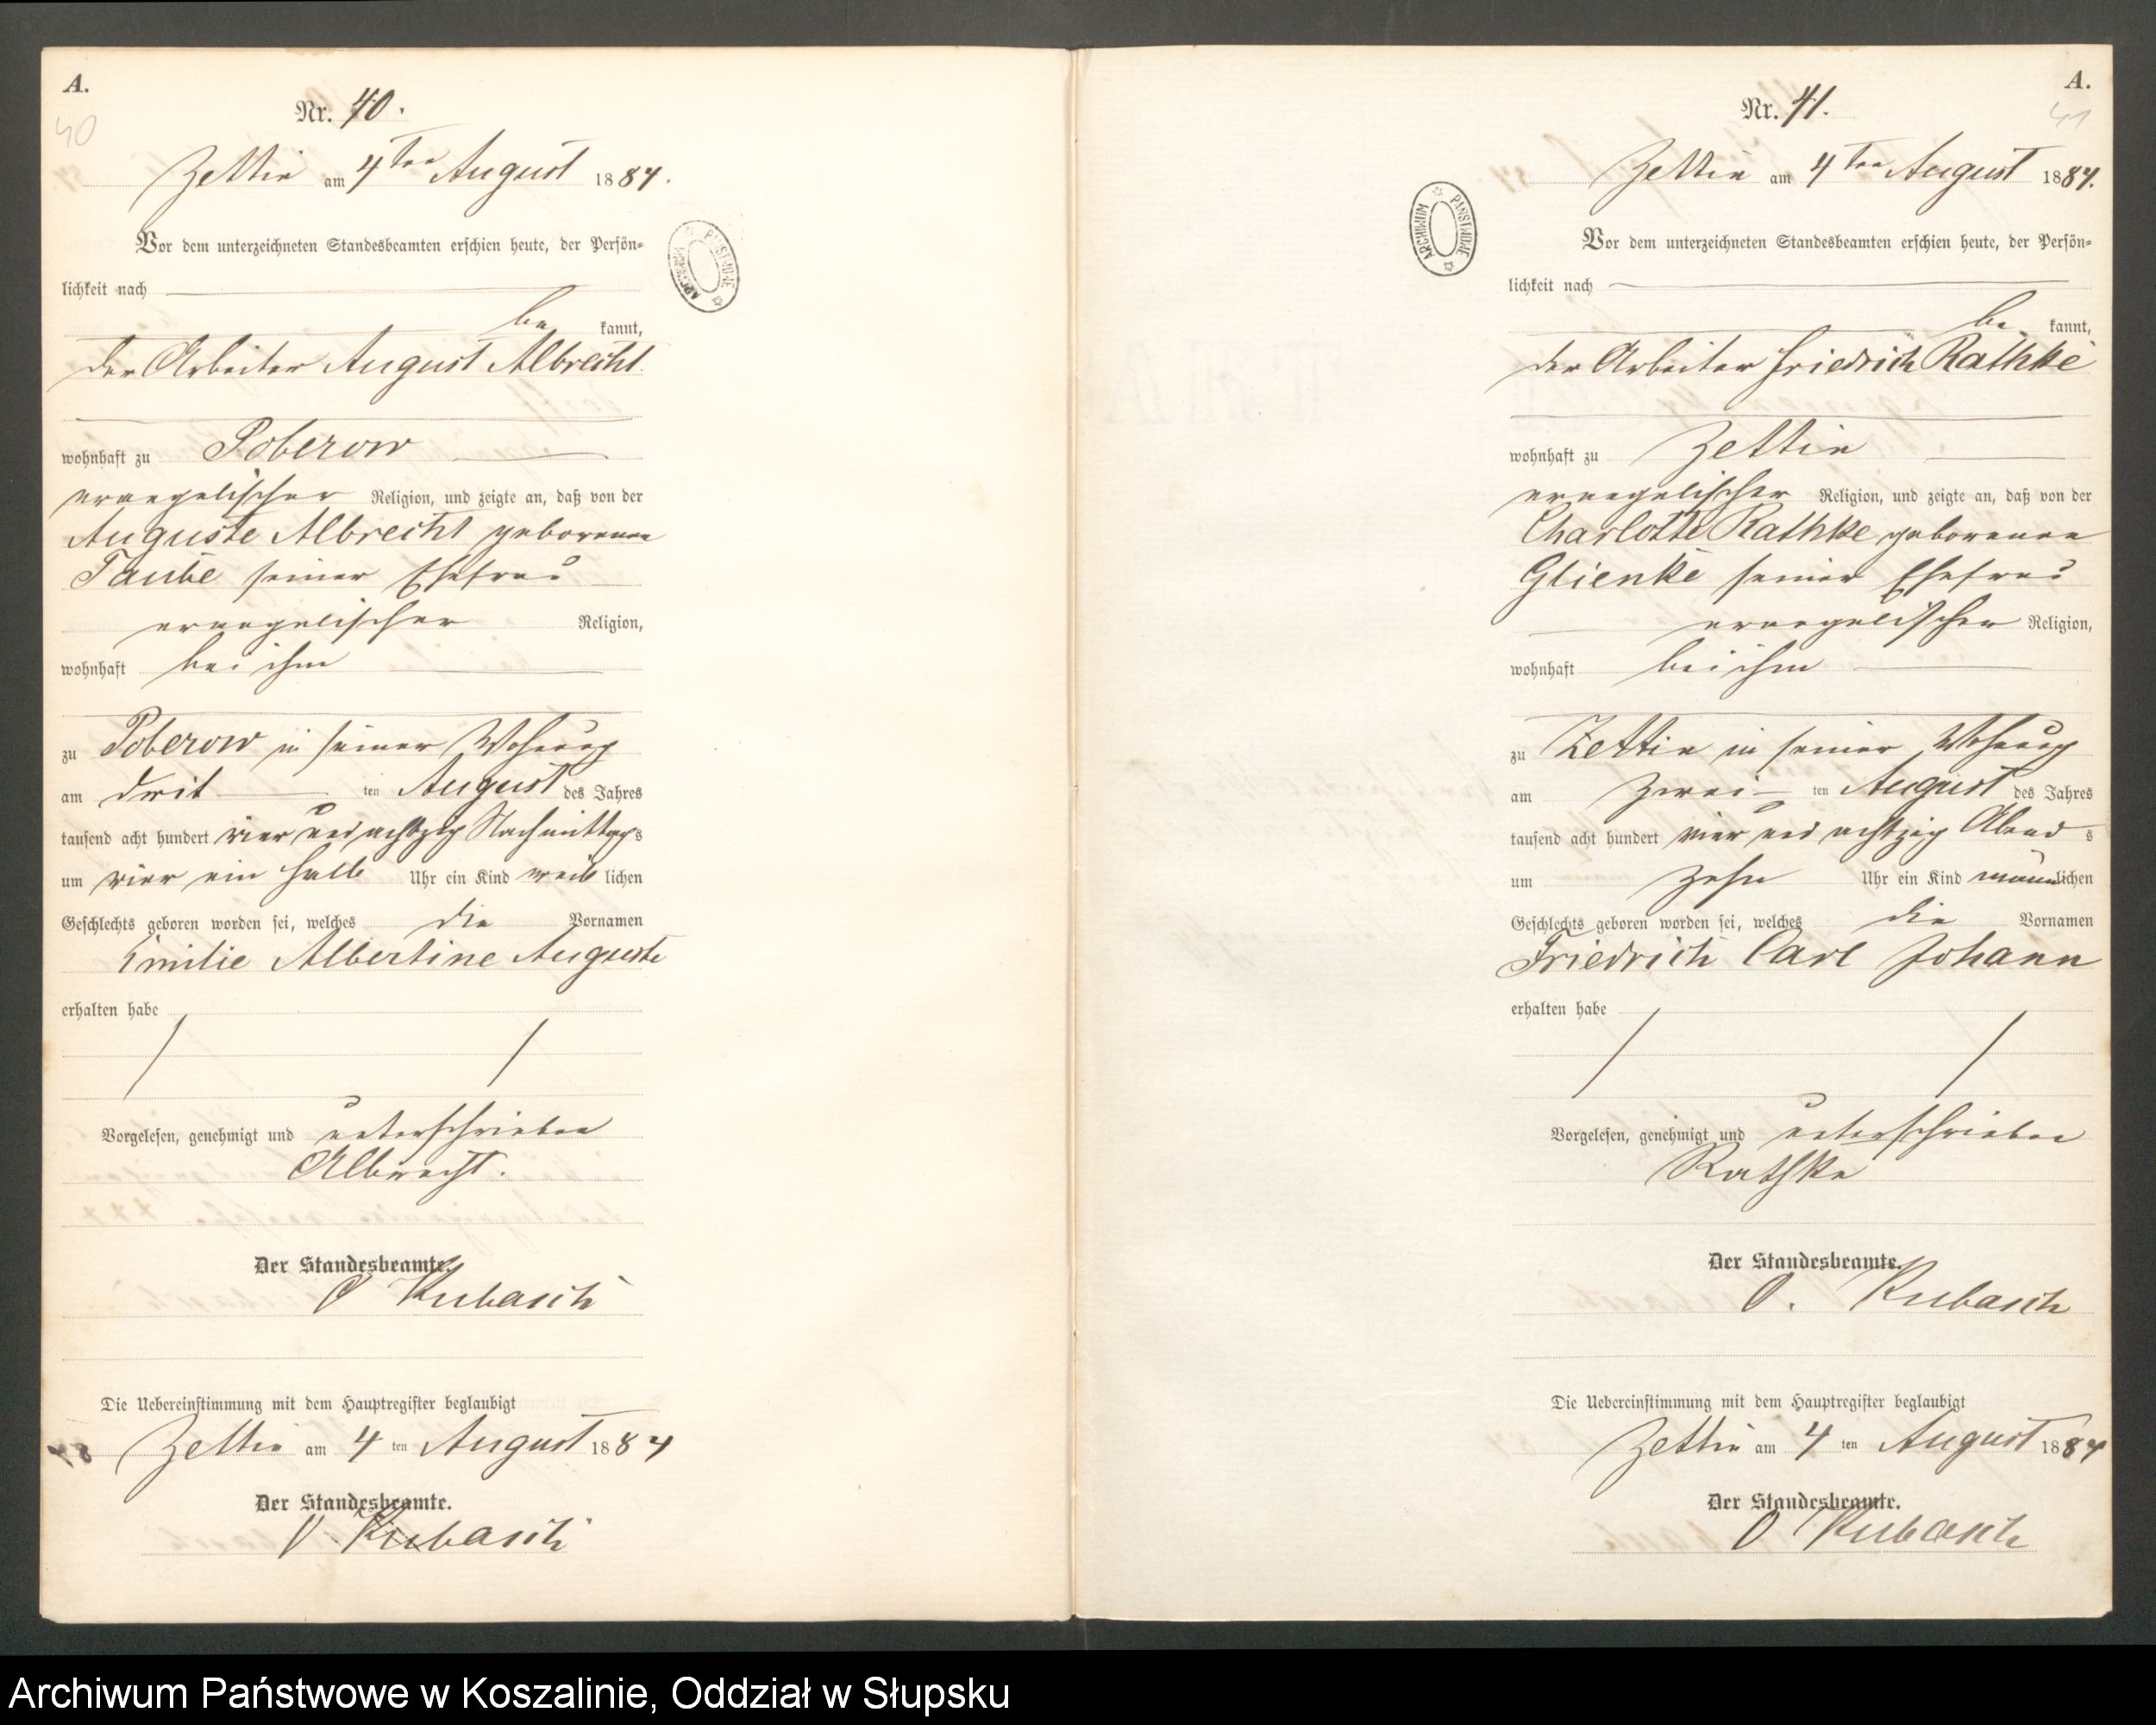 A.
40
Nr. 40.
Zettin am 4ten August 1884.
Vor dem unterzeichneten Standesbeamten erschien heute, der Persön-
lichkeit nach
be kannt,
der Arbeiter August Albrecht
wohnhaft zu Poberow
evangelischer Religion, und zeigte an, daß von der
Auguste Albrecht geborenen
Taube seiner Ehefrau
evangelischer Religion,
wohnhaft bei ihm
zu Poberow in seiner Wohnung
am drit ten August des Jahres
tausend acht hundert vier und achtzig Nachmittags
um vier ein halb Uhr ein Kind weib lichen
Geschlechts geboren worden sei, welches die Vornamen
Emilie Albertine Auguste
erhalten habe
Vorgelesen, genehmigt und unterschrieben
Albrecht.
Der Standesbeamte.
O Kubasch
Die Uebereinstimmung mit dem Hauptregister beglaubigt
Zettin am 4 ten August 1884
Der Standesbeamte.
O Kubasch
A.
41
Nr. 41.
Zettin am 4ten August 1884.
Vor dem unterzeichneten Standesbeamten erschien heute, der Persön-
lichkeit nach
be kannt,
der Arbeiter Friedrich Rathke
wohnhaft zu Zettin
evangelischer Religion, und zeigte an, daß von der
Charlotte Rathke geborenen
Glienke seiner Ehefrau
evangelischen Religion,
wohnhaft bei ihm
zu Zettin in seiner Wohnung
am zwei ten August des Jahres
tausend acht hundert vier und achtzig Abend s
um zehn Uhr ein Kind männlichen
Geschlechts geboren worden sei, welches die Vornamen
Friedrich Carl Johann
erhalten habe
Vorgelesen, genehmigt und unterschrieben
Rathke
Der Standesbeamte.
O. Kubasch
Die Uebereinstimmung mit dem Hauptregister beglaubigt
Zettin am 4 ten August 1884
Der Standesbeamte.
O Kubasch
ARCHIWUM PAŃSTWOWE
ARCHIWUM PAŃSTWOWE
Archiwum Państwowe w Koszalinie, Oddział w Słupsku